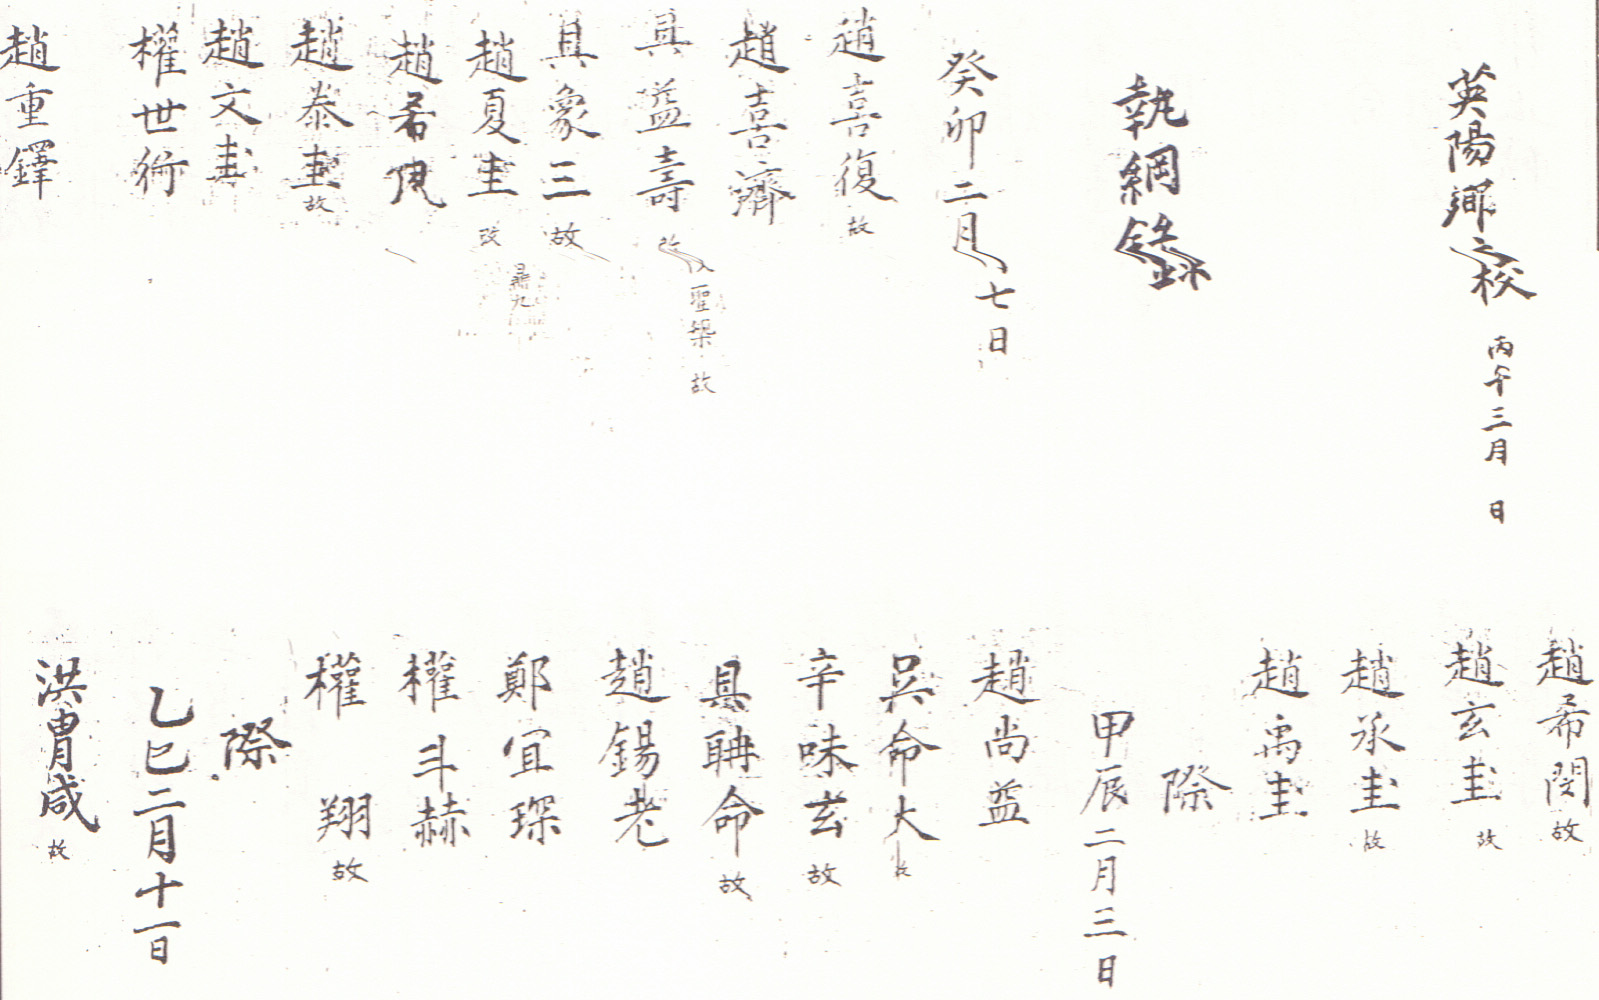 英陽鄕校 丙午三月 日
執綱錄
癸卯二月七日
趙喜復 故
趙喜濟
具益壽 改 聖築 故
具象三 故
趙夏圭 改 鼎九
趙希
趙泰圭 故
趙文圭
權世衡
趙重鐸
趙希閔 故
趙玄圭 故
趙承圭 故
趙禹圭
際
甲辰二月三日
趙尚益
吳命大 故
辛味玄 故
具聃命 故
趙錫老
鄭宜琛
權斗赫
權翔 故
際
乙巳二月十一日
洪胄咸 故